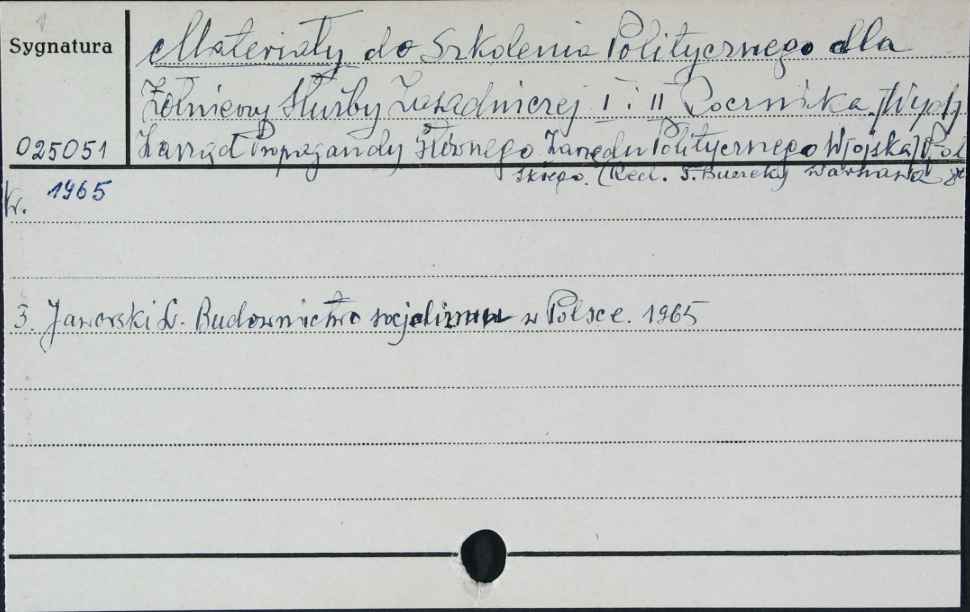 Sygnatura
Materiały do Szkolenia Politycznego dla
Żołnierzy Służby Zasadniczej I i II Rocznika. [Wyd.]
025051
Zarząd Propagandy Głównego Zarządu Politycznego Wojska Pol
skiego. (Red. Warszawa
Nr. 1965
3. Jaworski L. Budownictwo socjalizmu w Polsce. 1965